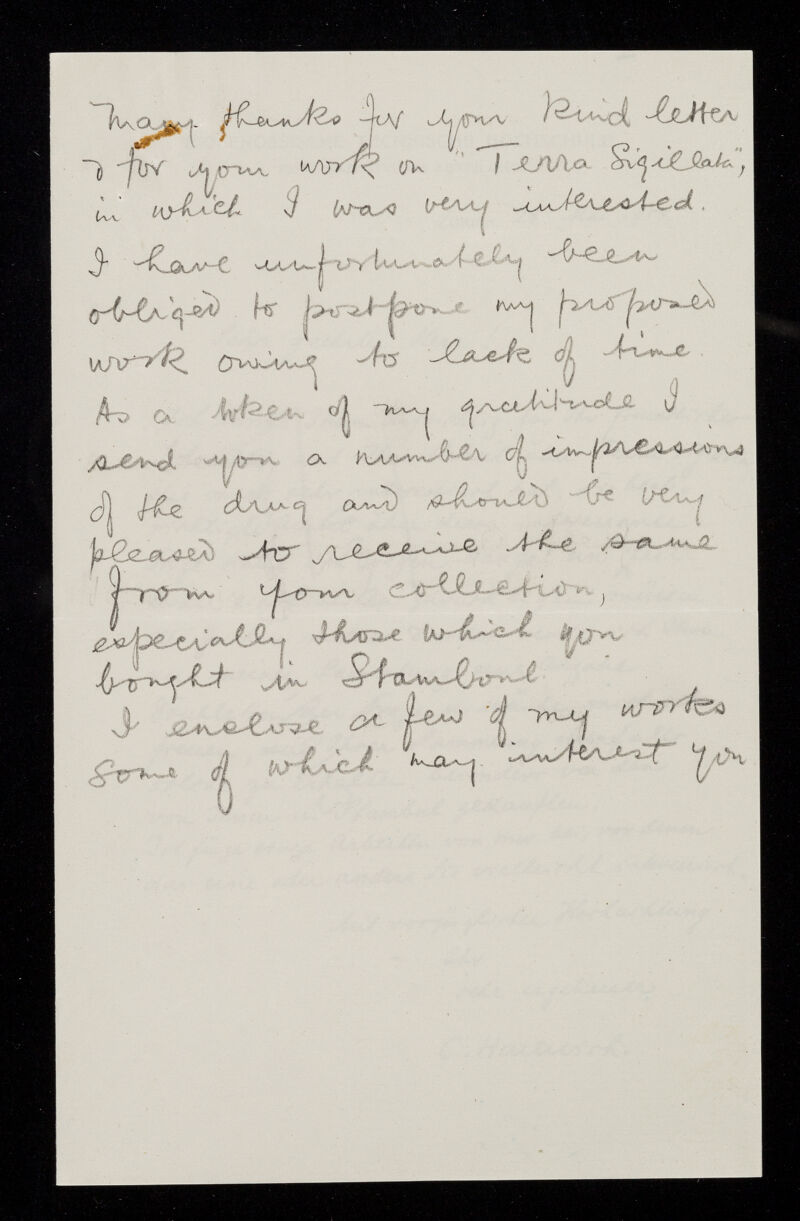 Many thanks for your kind letter
& for your work on "Terra Sigillata",
in which I was very interested.
I have unfortunately been
obliged to postpone my proposed
work owing to lack of time.
As a token of my gratitude I
send you a number of impressions
of the drug and should be very
pleased to receive the same
from your collection,
especially those which you
bought in Stamboul.
I enclose a few of my works
some of which may interest you